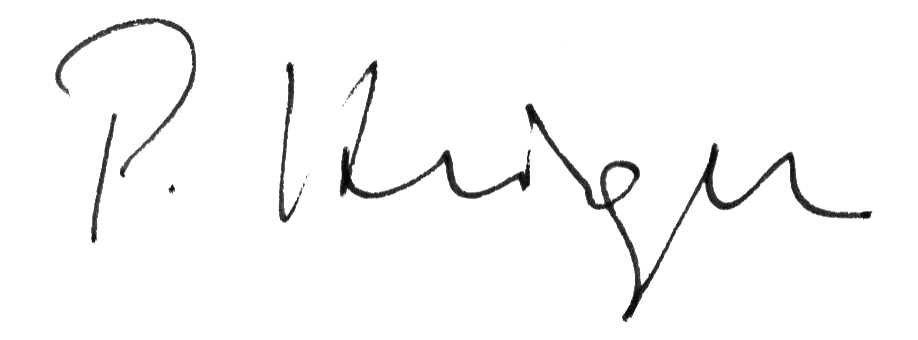 P. Krüger